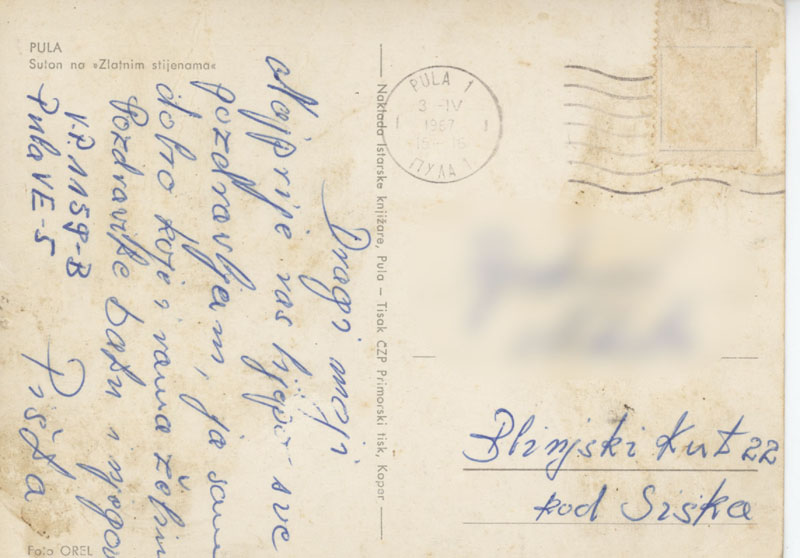 PULA
Suton na »Zlatnim stijenama«
Dragi moji
Najprije vas lijepo sve
pozdravljam, ja sam
dobro koje i vama želim
Pozdravite batu i njegov
V.P. 1159-B
Pula VE-5
Pišta
Foto OREL
Naklada Istarske knjižare, Pula – Tisak ČZP Primorski tisk, Koper
PULA 1
3 -IV
1967
15-16
ПУЛА 1
Blinjski Kut 22
kod Siska